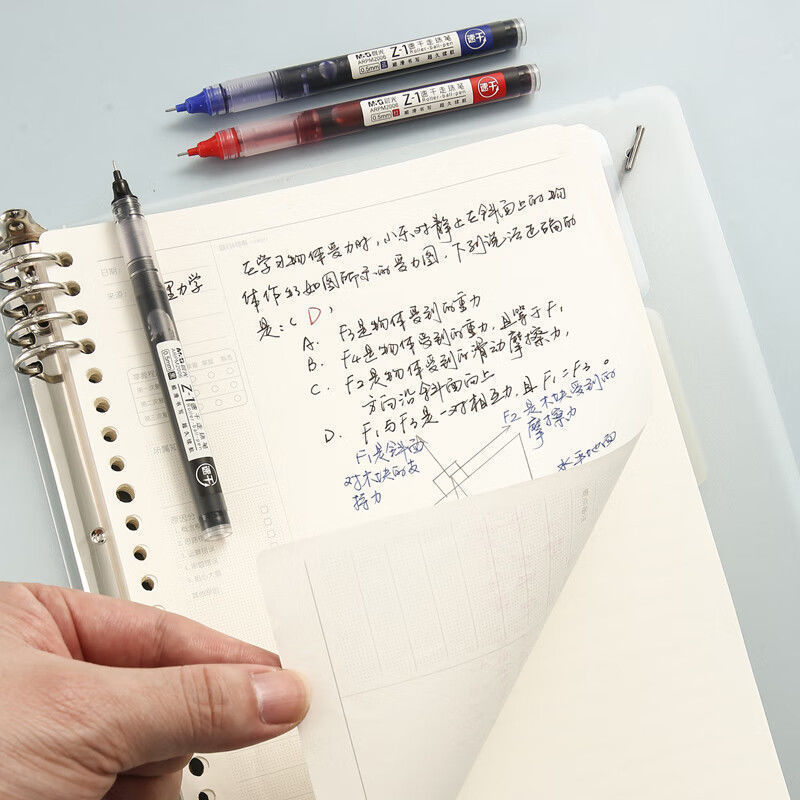 M&G 晨光 Z-1 速干走珠笔
ARPM2006 Roller-ball-pen
0.5mm 蓝 顺滑书写 超久续航
速干
M&G 晨光 Z-1 速干走珠笔
ARPM2006 Roller-ball-pen
0.5mm 红 顺滑书写 超久续航
速干
M&G 晨光 Z-1 速干走珠笔
0.5mm 顺滑书写 超久续航
速干
日期
理力学
在学习物体受力时,小东对静止在斜面上的物
体作的如图所示的受力图。下列说法正确的
是:( D )
A. F3是物体受到的重力
B. F4是物体受到的重力,且等于F1
C. F2是物体受到的滑动摩擦力,
方向沿斜面向上
D. F1与F3是一对相互力,且F1=F3。
F1是斜面
对木块的支
持力
F2是木块受到的
摩擦力
水平地面